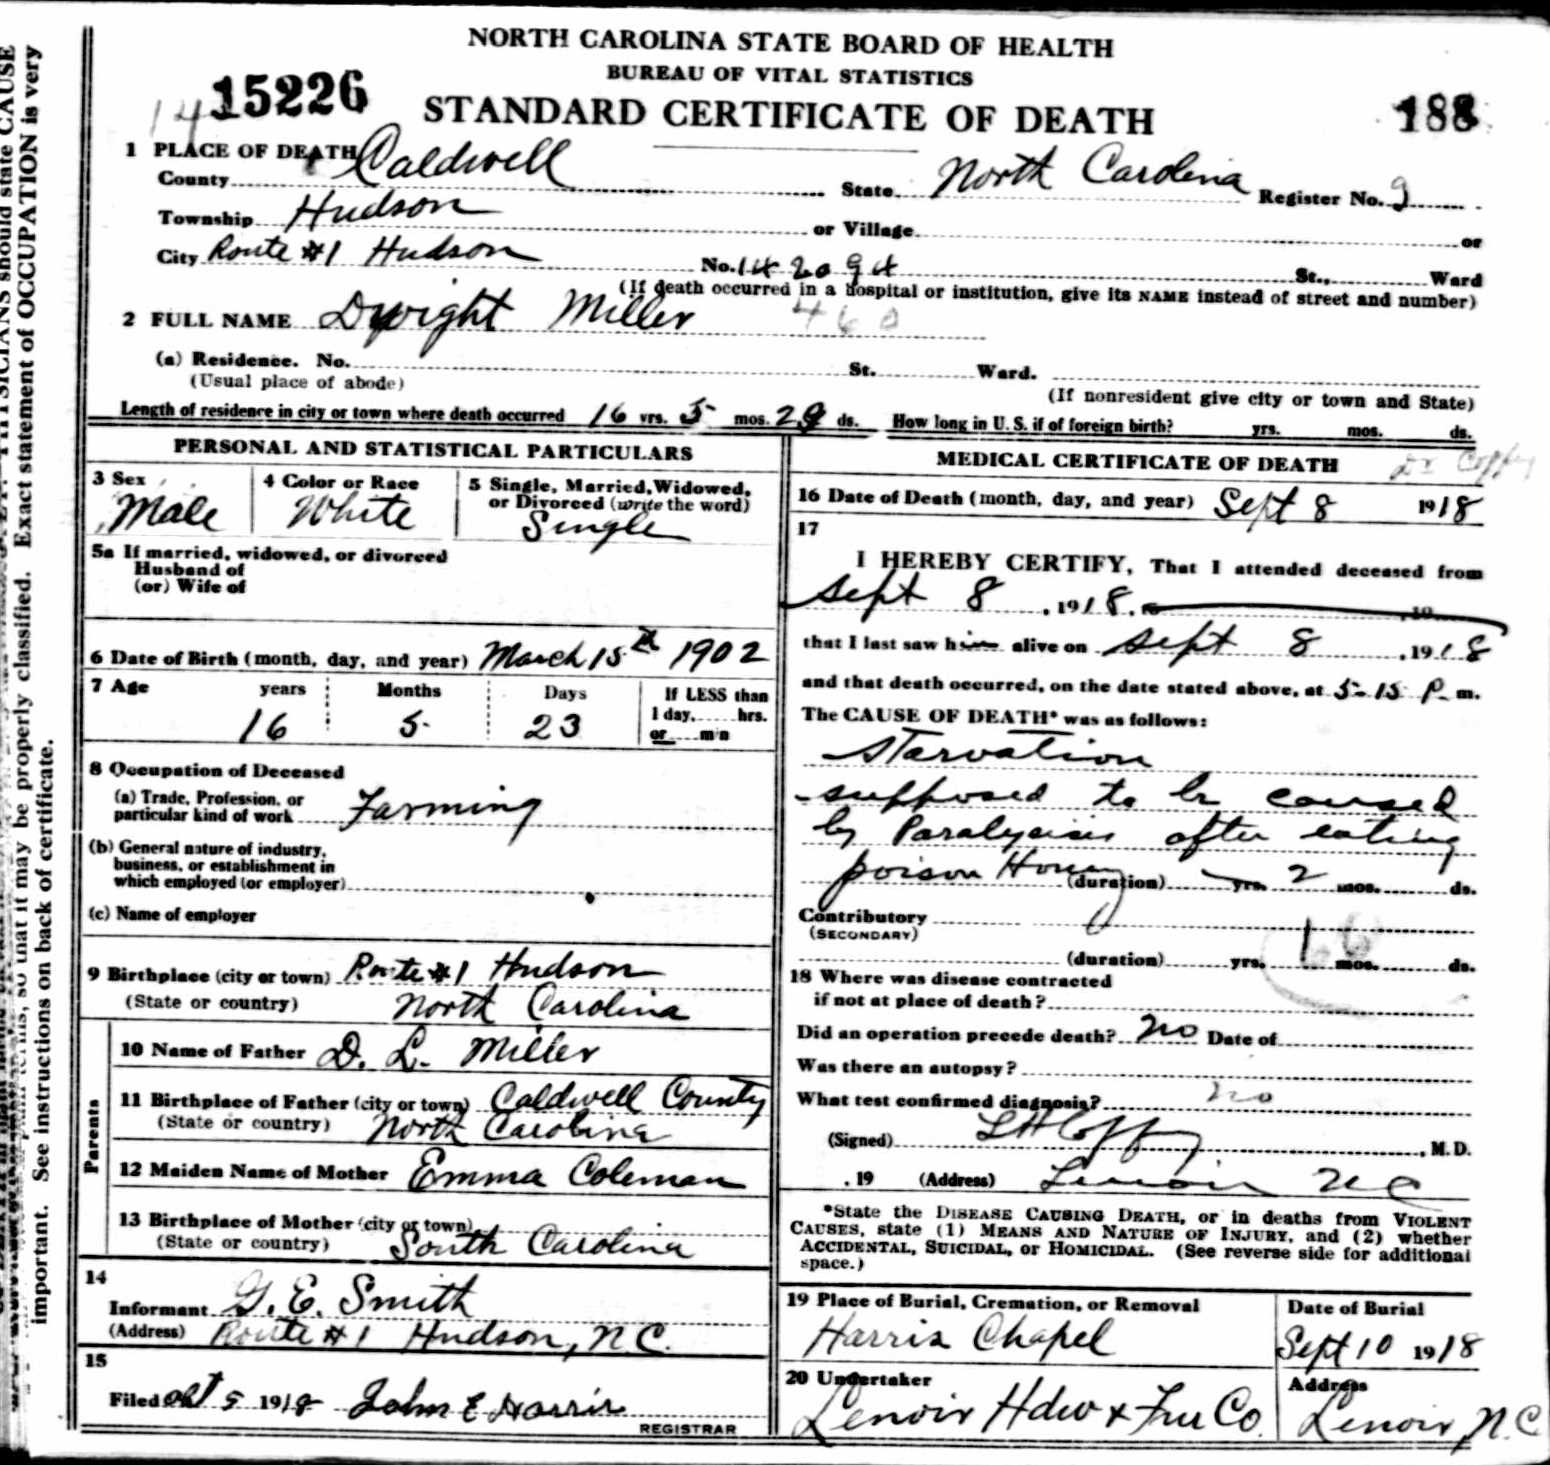 NORTH CAROLINA STATE BOARD OF HEALTH
BUREAU OF VITAL STATISTICS
15226 STANDARD CERTIFICATE OF DEATH 188
1 PLACE OF DEATH
County Caldwell State North Carolina Register No. 9
Township Hudson or Village or
City Route #1 Hudson No. St., Ward
(If death occurred in a hospital or institution, give its NAME instead of street and number)
2 FULL NAME Dwight Miller 460
(a) Residence. No. St. Ward.
(Usual place of abode) (If nonresident give city or town and State)
Length of residence in city or town where death occurred 16 yrs. 5 mos. ds. How long in U. S. if of foreign birth? yrs. mos. ds.
PERSONAL AND STATISTICAL PARTICULARS
3 Sex 4 Color or Race 5 Single, Married, Widowed,
or Divorced (write the word)
Male White Single
5a If married, widowed, or divorced
Husband of
(or) Wife of
6 Date of Birth (month, day, and year) March 15th 1902
7 Age years Months Days If LESS than
1 day, hrs.
16 5 23 or min
8 Occupation of Deceased
(a) Trade, Profession, or
particular kind of work Farming
(b) General nature of industry,
business, or establishment in
which employed (or employer)
(c) Name of employer
9 Birthplace (city or town) Route #1 Hudson
(State or country) North Carolina
Parents
10 Name of Father D. L. Miller
11 Birthplace of Father (city or town) Caldwell County
(State or country) North Carolina
12 Maiden Name of Mother Emma Coleman
13 Birthplace of Mother (city or town)
(State or country) South Carolina
14
Informant G. E. Smith
(Address) Route #1 Hudson, N.C.
15
Filed Oct 5 1918 John E Harris
REGISTRAR
MEDICAL CERTIFICATE OF DEATH Dr Coffey
16 Date of Death (month, day, and year) Sept 8 1918
17
I HEREBY CERTIFY, That I attended deceased from
Sept 8, 1918, to , 19
that I last saw him alive on Sept 8, 1918
and that death occurred, on the date stated above, at 5-15 P. m.
The CAUSE OF DEATH* was as follows:
Starvation
supposed to be caused
by Paralysis after eating
poison Honey (duration) yrs. 2 mos. ds.
Contributory
(SECONDARY)
(duration) yrs. mos. ds.
18 Where was disease contracted
if not at place of death?
Did an operation precede death? No Date of
Was there an autopsy?
What test confirmed diagnosis? no
(Signed) L H Coffey, M. D.
, 19 (Address) Lenoir N C
*State the DISEASE CAUSING DEATH, or in deaths from VIOLENT
CAUSES, state (1) MEANS AND NATURE OF INJURY, and (2) whether
ACCIDENTAL, SUICIDAL, or HOMICIDAL. (See reverse side for additional
space.)
19 Place of Burial, Cremation, or Removal Date of Burial
Harris Chapel Sept 10 1918
20 Undertaker Address
Lenoir Hdw & Fur Co. Lenoir N.C
PHYSICIANS should state CAUSE
Exact statement of OCCUPATION is very
so that it may be properly classified.
important. See instructions on back of certificate.